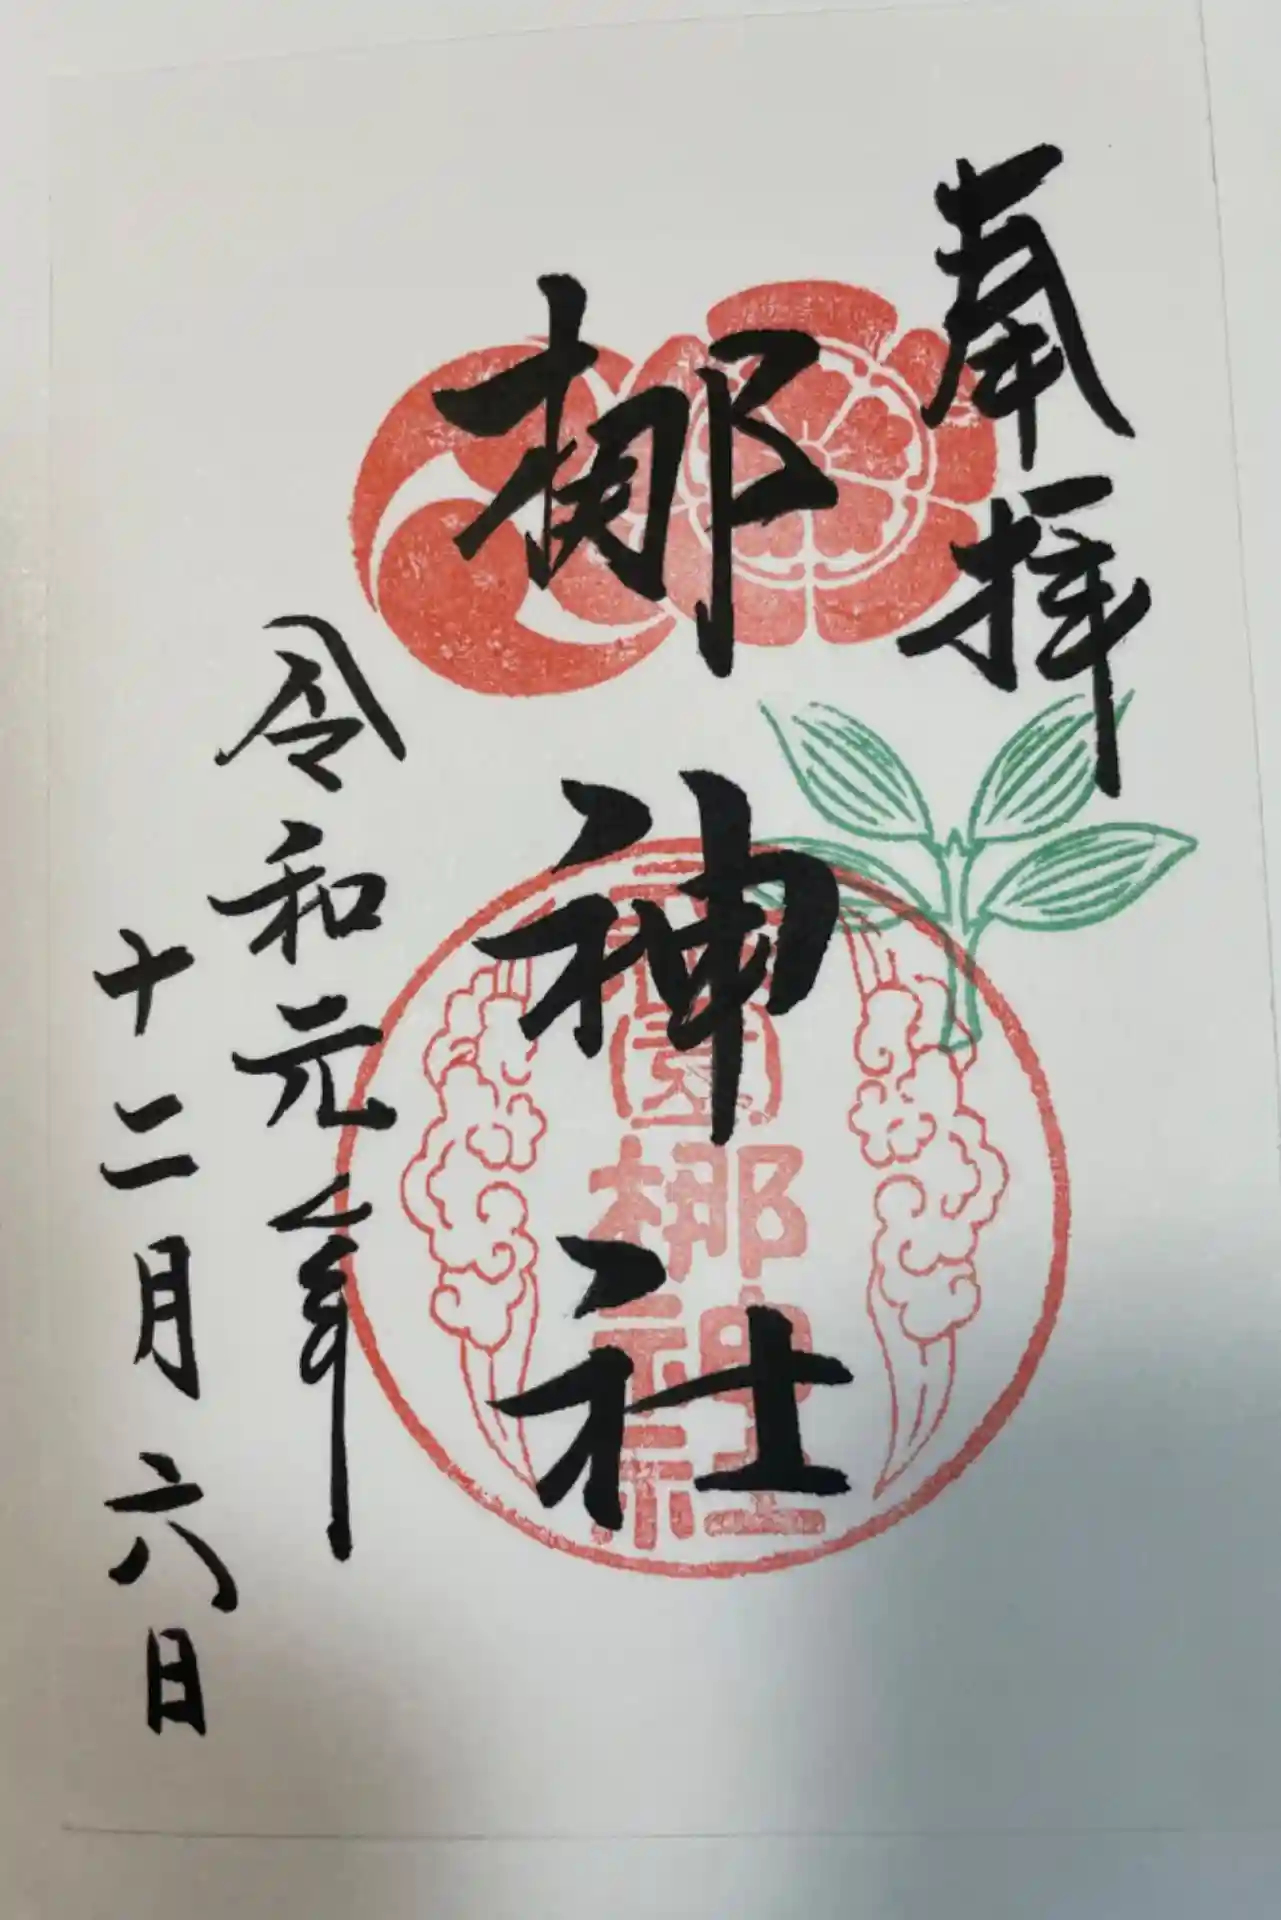 奉拝
梛神社
令和元年
十二月六日
梛神社